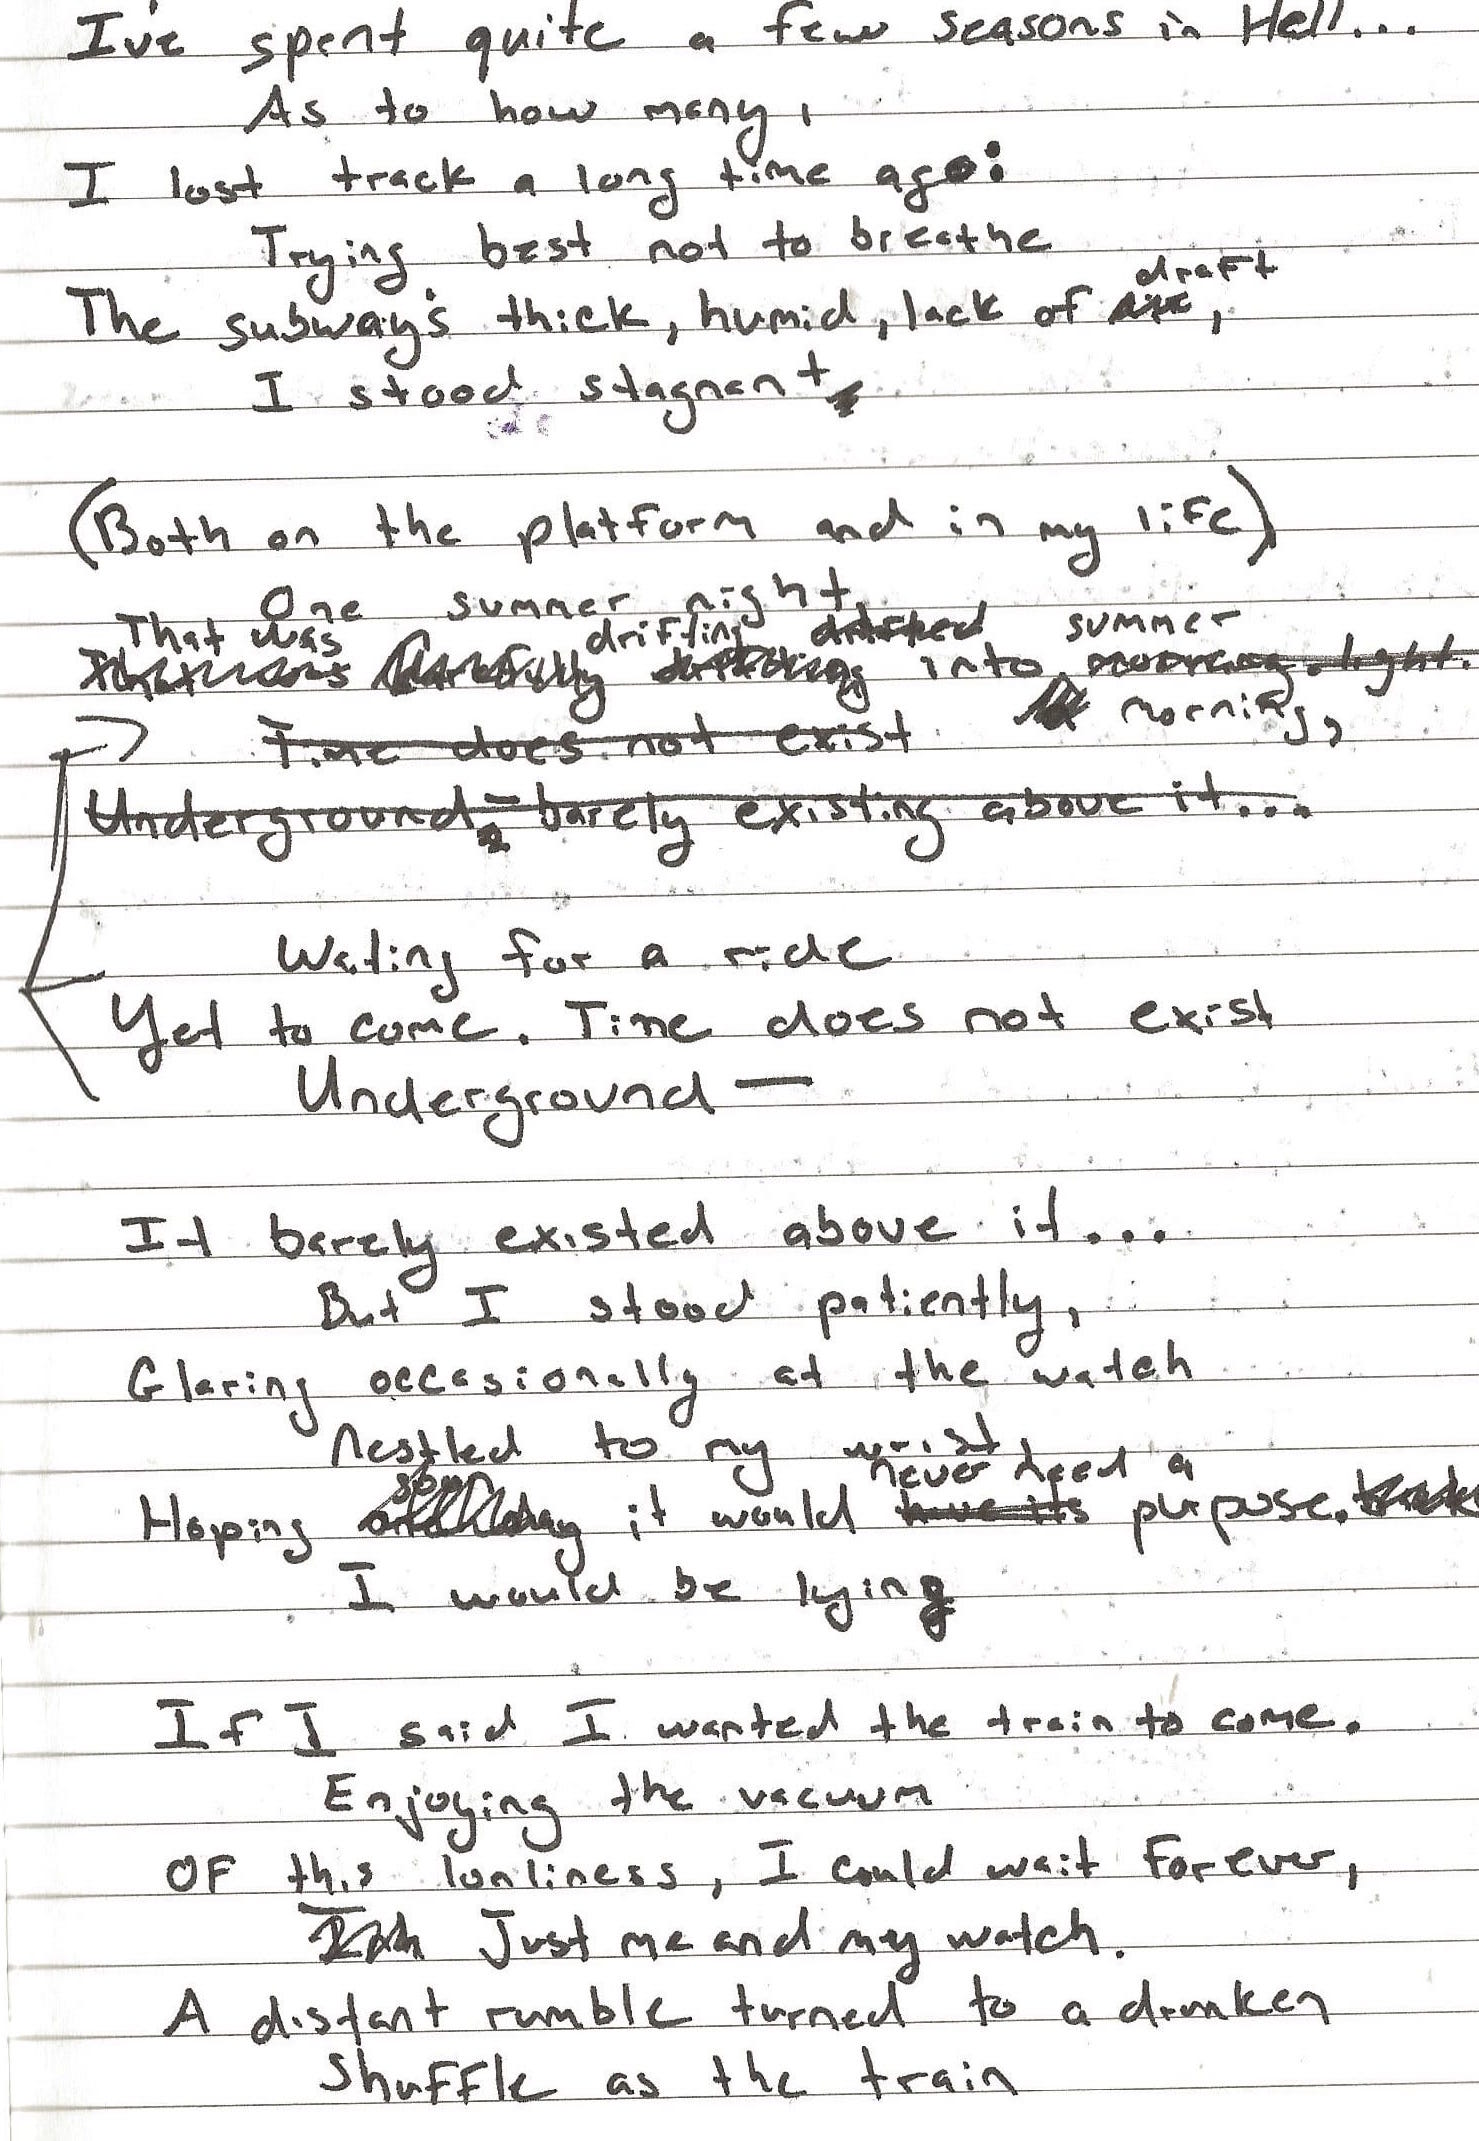 I've spent quite a few seasons in Hell...
As to how many,
I lost track a long time ago:
Trying best not to breathe
draft
The subway's thick, humid, lack of air,
I stood stagnant
(Both on the platform and in my life)
One summer night
That was drifting drifted summer
into morning light.
Time does not exist morning,
Underground - barely existing above it...
Wating for a ride
Yet to come. Time does not exist
Underground —
It barely existed above it...
But I stood patiently,
Glaring occasionally at the watch
Nestled to my wrist
never need a
Hoping it would have its purpose.
I would be lying
If I said I wanted the train to come.
Enjoying the vacuum
OF this lonliness, I could wait forever,
Just me and my watch.
A distant rumble turned to a drunken
Shuffle as the train